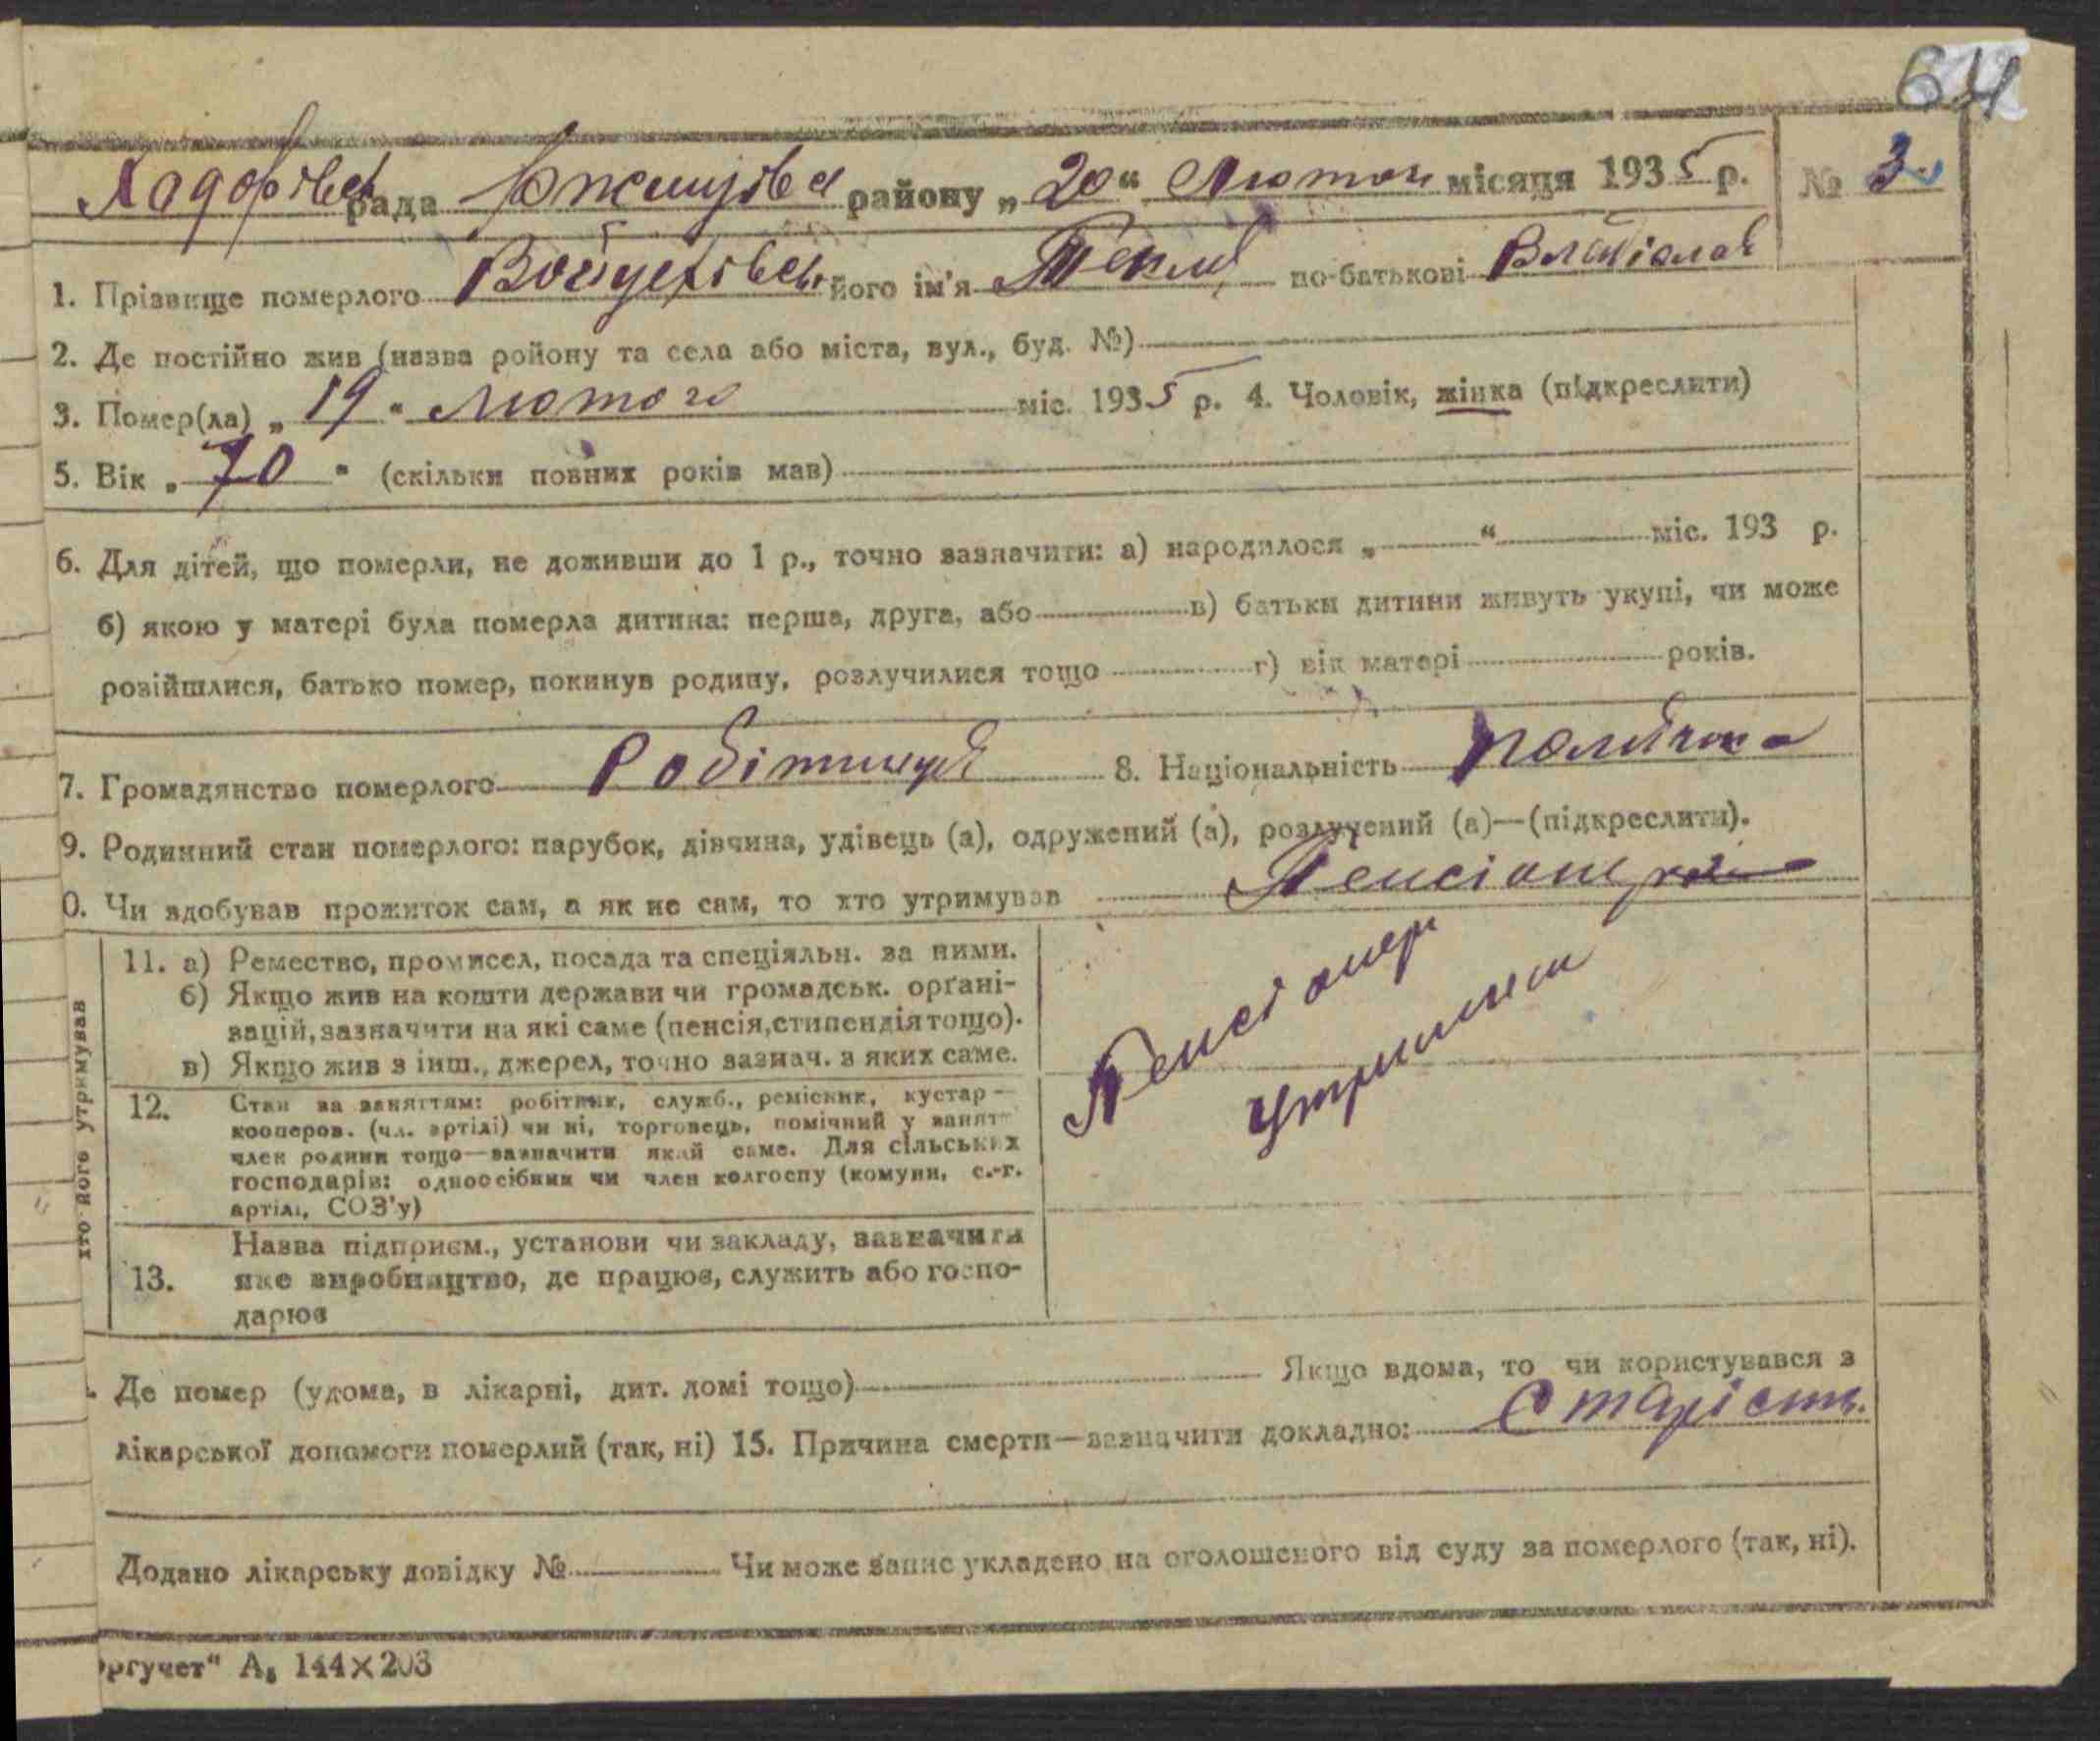 64
Ходорівсь рада Ружинсько району „ 20 “ Лютого місяця 1935 р. № 3
1. Прізвище померлого Войцехівсь його ім'я Текля по-батькові
2. Де постійно жив (назва ройону та села або міста, вул., буд. №)
3. Помер(ла) „ 19 " лютого міс. 1935 р. 4. Чоловік, жінка (підкреслити)
5. Вік „ 70 " (скільки повних років мав)
6. Для дітей, що померли, не доживши до 1 р., точно зазначити: а) народилося „ “ міс. 193 р.
б) якою у матері була померла дитина: перша, друга, або в) батьки дитини живуть укупі, чи може
розійшлися, батько помер, покинув родину, розлучилися тощо г) вік матері років.
7. Громадянство померлого Робітниця 8. Національність полячка
9. Родинний стан померлого: парубок, дівчина, удівець (а), одружений (а), розлучений (а)—(підкреслити).
0. Чи здобував прожиток сам, а як не сам, то хто утримував Пенсіонер
хто його утримував
11. а) Ремество, промисел, посада та спеціяльн. за ними.
б) Якщо жив на кошти держави чи громадськ. орґані-
зацій, зазначити на які саме (пенсія, стипендія тощо).
в) Якщо жив з інш., джерел, точно зазнач. з яких саме.
Пенсіонер
12. Стан за заняттям: робітник, служб., ремісник, кустар —
кооперов. (чл. артілі) чи ні, торговець, помічний у занят
член родини тощо—зазначити який саме. Для сільських
господарів: одноосібник чи член колгоспу (комуни, с.-г.
артілі, СОЗ'у)
13. Назва підприєм., установи чи закладу, зазначити
яке виробництво, де працює, служить або госпо-
дарює
Де помер (удома, в лікарні, дит. домі тощо) Якщо вдома, то чи користувався з
лікарської допомоги померлий (так, ні) 15. Причина смерти—зазначити докладно: Старість.
Додано лікарську довідку № Чи може запис укладено на оголошеного від суду за померлого (так, ні).
ргучет" А₅ 144×203